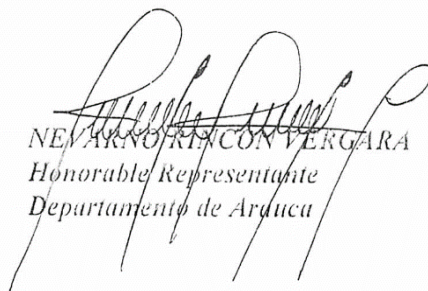 NEVARNO RINCÓN VERGARA
Honorable Representante
Departamento de Arauca